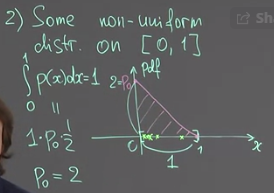 2) Some non-uniform
distr. on [0, 1]
1
∫ p(x)dx=1
0
"
1·P₀·½
P₀ = 2
pdf
2=P₀
0
1
1
x
Sh